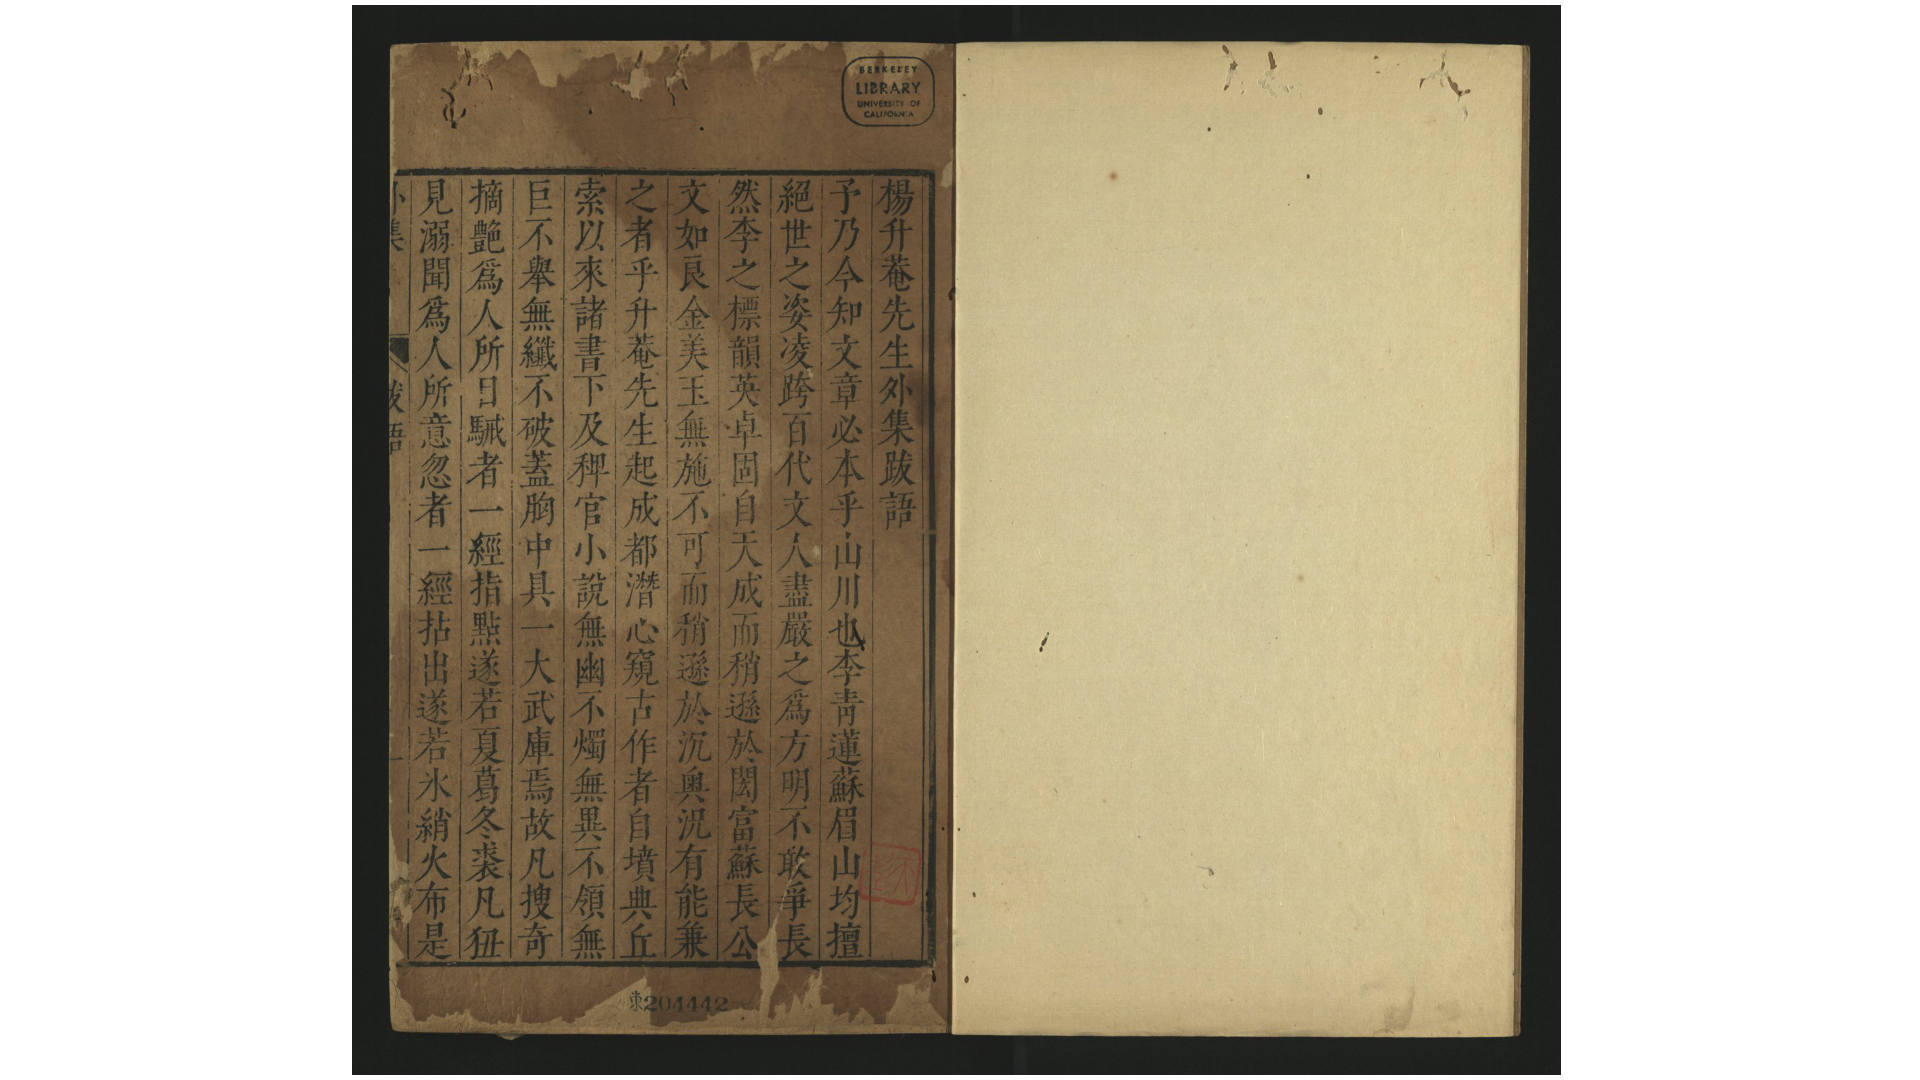 楊升菴先生外集跋語
予乃今知文章必本乎山川也李青蓮蘇眉山均擅
絕世之姿凌跨百代文人盡嚴之爲方明不敢爭長
然李之標韻英卓固自天成而稍遜於閎富蘇長公
文如良金美玉無施不可而稍遜於沉奧況有能兼
之者乎升菴先生起成都潛心窺古作者自墳典丘
索以來諸書下及稗官小說無幽不燭無異不領無
巨不舉無纖不破蓋胸中具一大武庫焉故凡搜奇
摘艷爲人所日駴者一經指點遂若夏葛冬裘凡狃
見溺聞爲人所意忽者一經拈出遂若氷綃火布是
外集 跋語 一
BERKELEY
LIBRARY
UNIVERSITY OF
CALIFORNIA
東204442